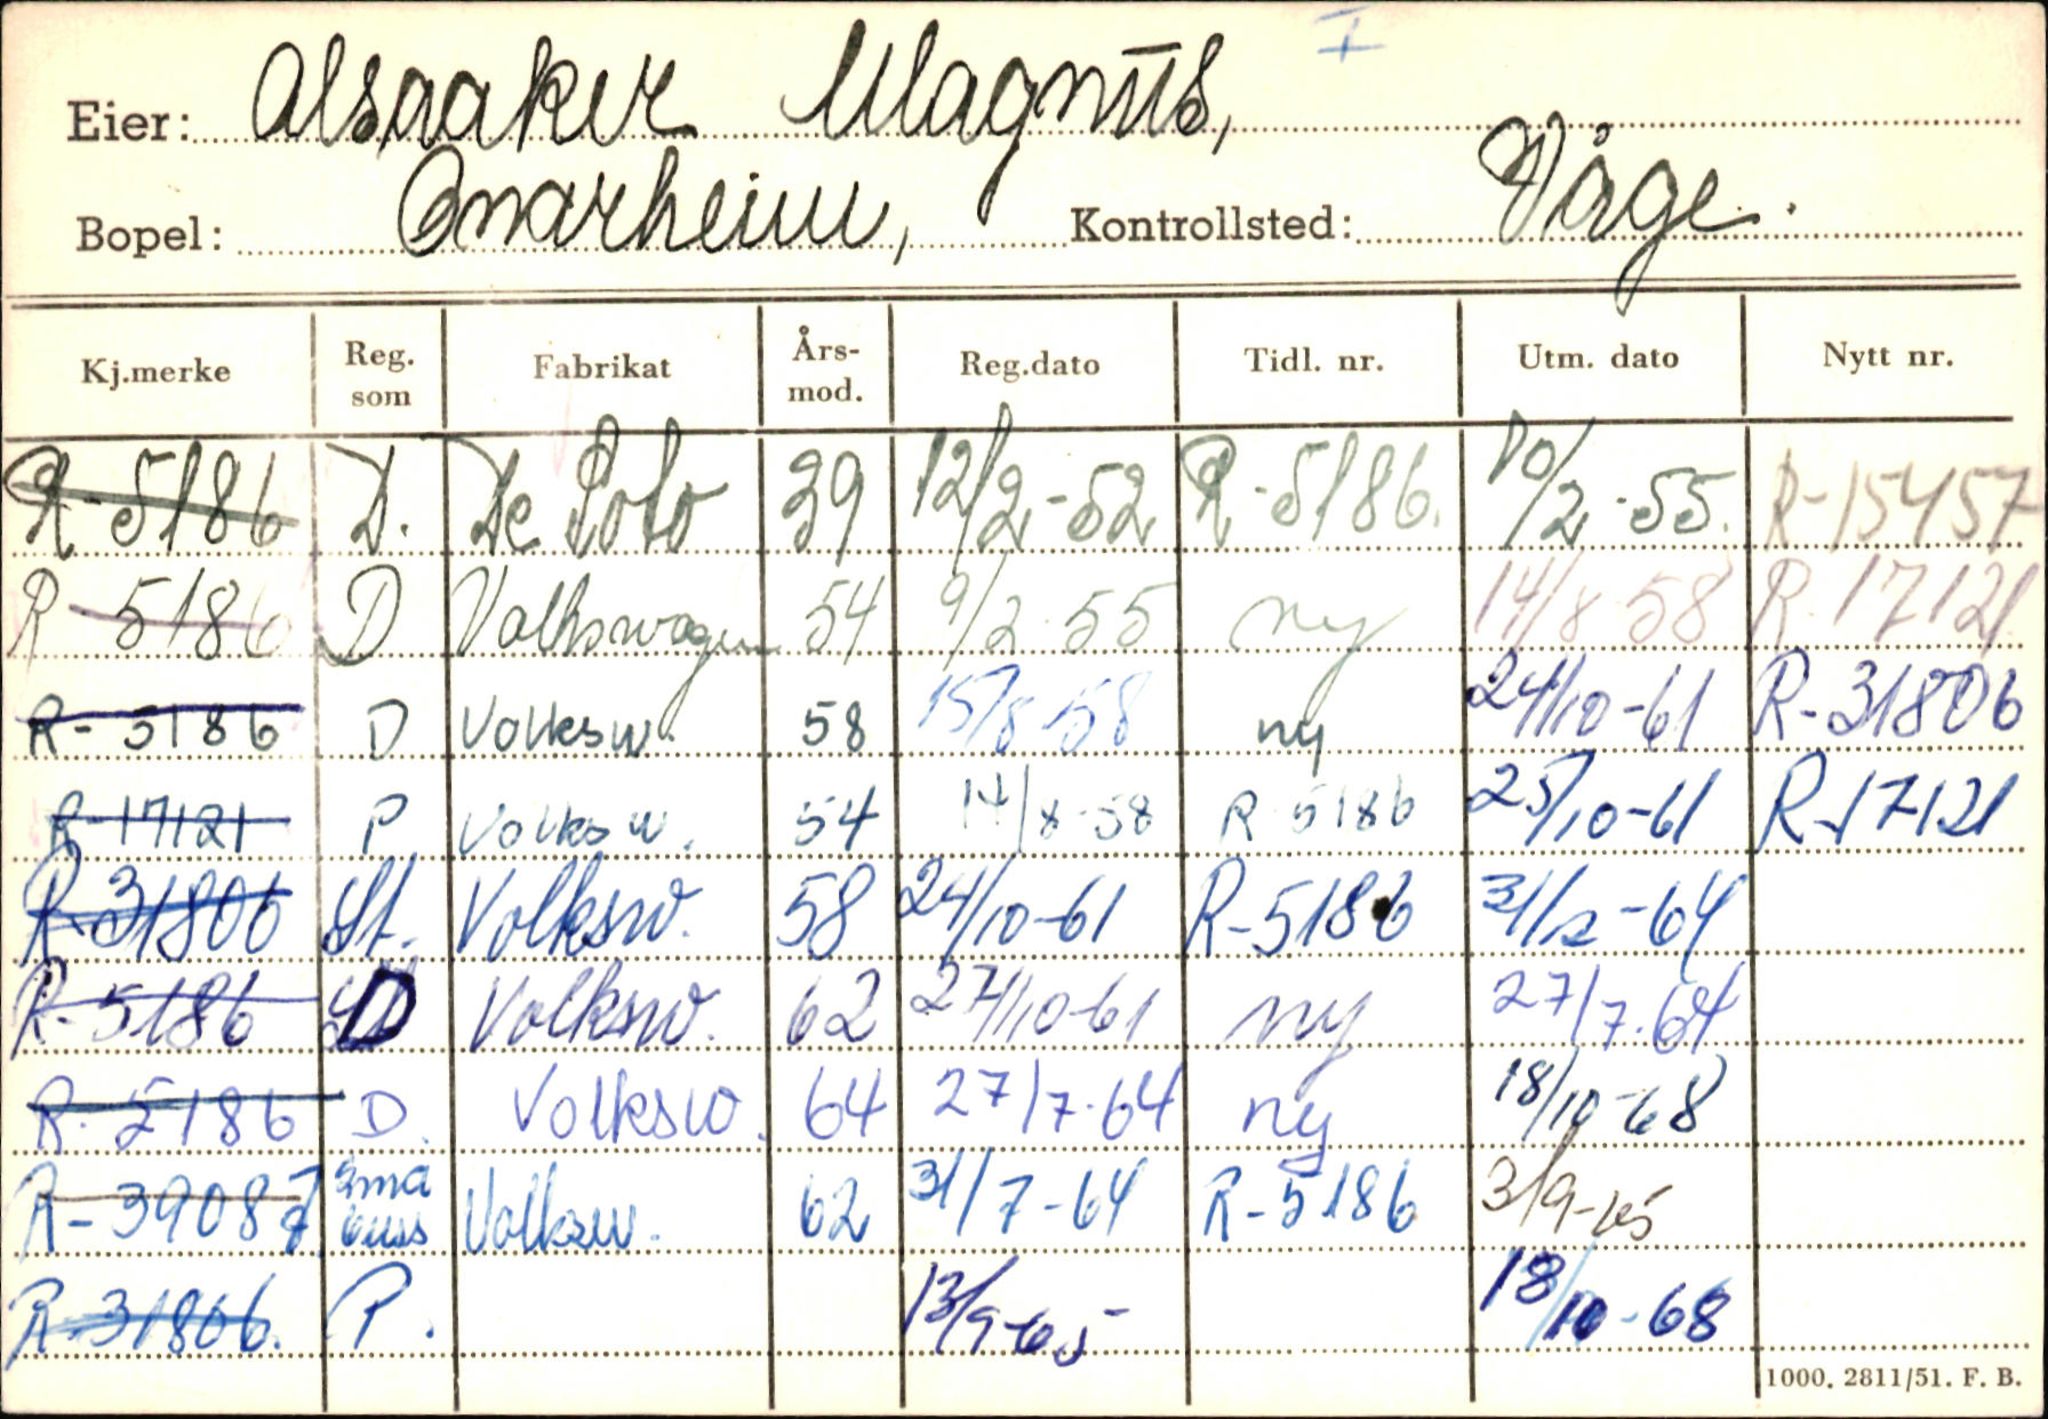 I
Eier: Alsaaker Magnus,
Bopel: Onarheim, Kontrollsted: Våge.
Kj.merke Reg. som Fabrikat Års-mod. Reg.dato Tidl. nr. Utm. dato Nytt nr.
R-5186 D. De Soto 39 12/2-52 R-5186. 10/2-55. R-15457
R-5186 D Volkswagen 54 9/2-55 ny 14/8-58 R-17121
R-5186 D Volksw. 58 15/8-58 ny 24/10-61 R-31806
R-17121 P Volksw. 54 14/8-58 R-5186 25/10-61 R-17121
R-31806 St. Volksw. 58 24/10-61 R-5186 31/12-64
R-5186 D Volksw. 62 27/10-61 ny 27/7-64
R-5186 D. Volksw. 64 27/7-64 ny 18/10-68
R-39087 små buss Volksw. 62 31/7-64 R-5186 3/9-65
R-31806. P. 13/9-65 18/10-68
1000. 2811/51. F. B.